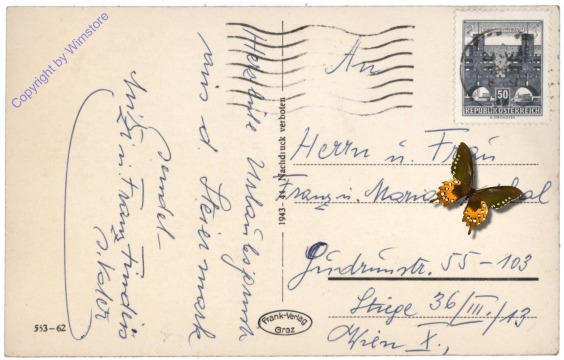 Copyright by Wimstore
Herzliche Urlaubsgrüsse
aus d Steiermark
sendet
Mitzi u. Franz
1943 Nachdruck verboten
Frank-Verlag
Graz
553-62
50
REPUBLIK ÖSTERREICH
An
Herrn u. Frau
Franz u. Maria
Gudrunstr. 55-103
Stiege 36/III./13
Wien X.,